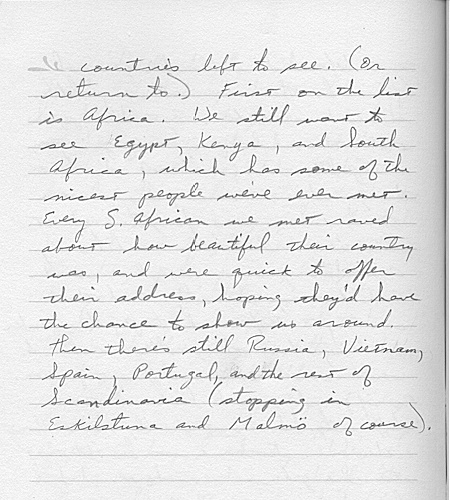 countries left to see. (Or
return to.) First on the list
is Africa. We still want to
see Egypt, Kenya, and South
Africa, which has some of the
nicest people we've ever met.
Every S. African we met raved
about how beautiful their country
was, and were quick to offer
their address, hoping they'd have
the chance to show us around.
Then there's still Russia, Vietnam,
Spain, Portugal, and the rest of
Scandinavia (stopping in
Eskilstuna and Malmö of course).